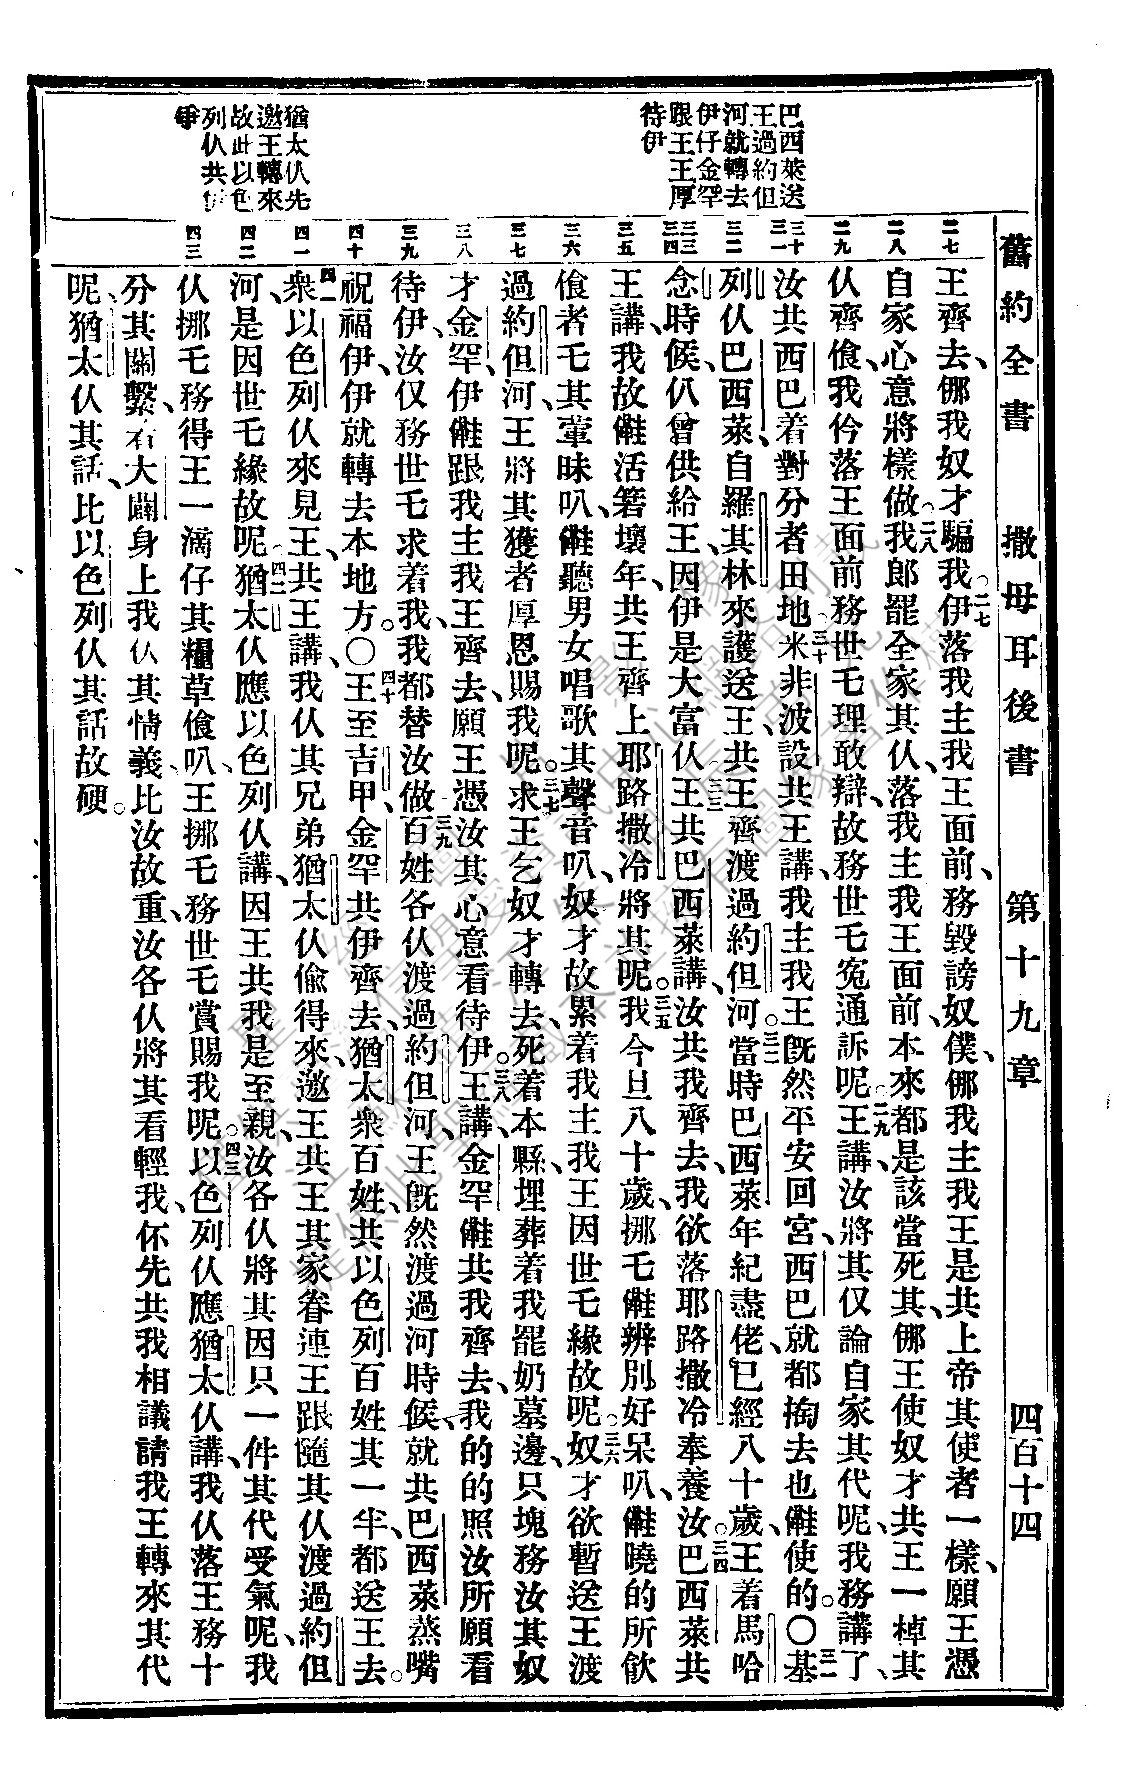 舊約全書 撒母耳後書 第十九章 四百十四
巴西萊送
王過約但
河就轉去
伊仔金罕
跟王王厚
待伊
猶太仈先
邀王轉來
故此以色
列仈共伊
爭
二七
二八
二九
三十 三一
三二
三三 三四
三五
三六
三七
三八
三九
四十
四一
四二
四三
王齊去、㑚我奴才騙我、二七伊落我主我王面前、務毀謗奴僕、㑚我主我王是共上帝其使者一樣、願王憑
自家心意將樣做、二八我郎罷全家其仈、落我主我王面前、本來都是該當死其、㑚王使奴才共王一棹其
仈齊食、我仱落王面前務世乇理敢辯、故務世乇冤通訴呢、二九王講、汝將其仅論自家其代呢、我務講了、
汝共西巴着對分者田地、三十米非波設共王講、我主我王旣然平安回宮、西巴就都掏去也㒀使的。〇三一基
列仈巴西萊、自羅其林來護送王、共王齊渡過約但河。三二當時巴西萊年紀盡佬、已經八十歲、王着馬哈
念時候、仈曾供給王、因伊是大富仈、三三王共巴西萊講、汝共我齊去、我欲落耶路撒冷奉養汝。三四巴西萊共
王講、我故㒀活箬壞年、共王齊上耶路撒冷將其呢。三五我今旦八十歲、挪乇㒀辨別好呆叭、㒀曉的所飲
食者乇其葷昧叭、㒀聽男女唱歌其聲音叭、奴才故累着我主我王因世乇緣故呢。三六奴才欲暫送王渡
過約但河、王將其獲者厚恩賜我呢。三七求王乞奴才轉去、死着本縣、埋葬着我罷奶墓邊、只塊務汝其奴
才金罕、伊㒀跟我主我王齊去、願王憑汝其心意看待伊。三八王講、金罕㒀共我齊去、我的的照汝所願看
待伊、汝仅務世乇求着我、我都替汝做、三九百姓各仈渡過約但河、王旣然渡過河時候、就共巴西萊蒸嘴
祝福伊、伊就轉去本地方。〇四十王至吉甲、金罕共伊齊去、猶太衆百姓、共以色列百姓其一半、都送王去。
四一衆以色列仈來見王、共王講、我仈其兄弟猶太仈偷得來、邀王共王其家眷連王跟隨其仈、渡過約但
河、是因世乇緣故呢、四二猶太仈應以色列仈講、因王共我是至親、汝各仈將其因只一件其代受氣呢、我
仈挪乇務得王一滴仔其糧草食叭、王挪乇務世乇賞賜我呢。四三以色列仈應猶太仈講、我仈落王務十
分其關繫、右大闢身上我仈其情義、比汝故重、汝各仈將其看輕我、怀先共我相議請我王轉來其代
呢、猶太仈其話、比以色列仈其話故硬。